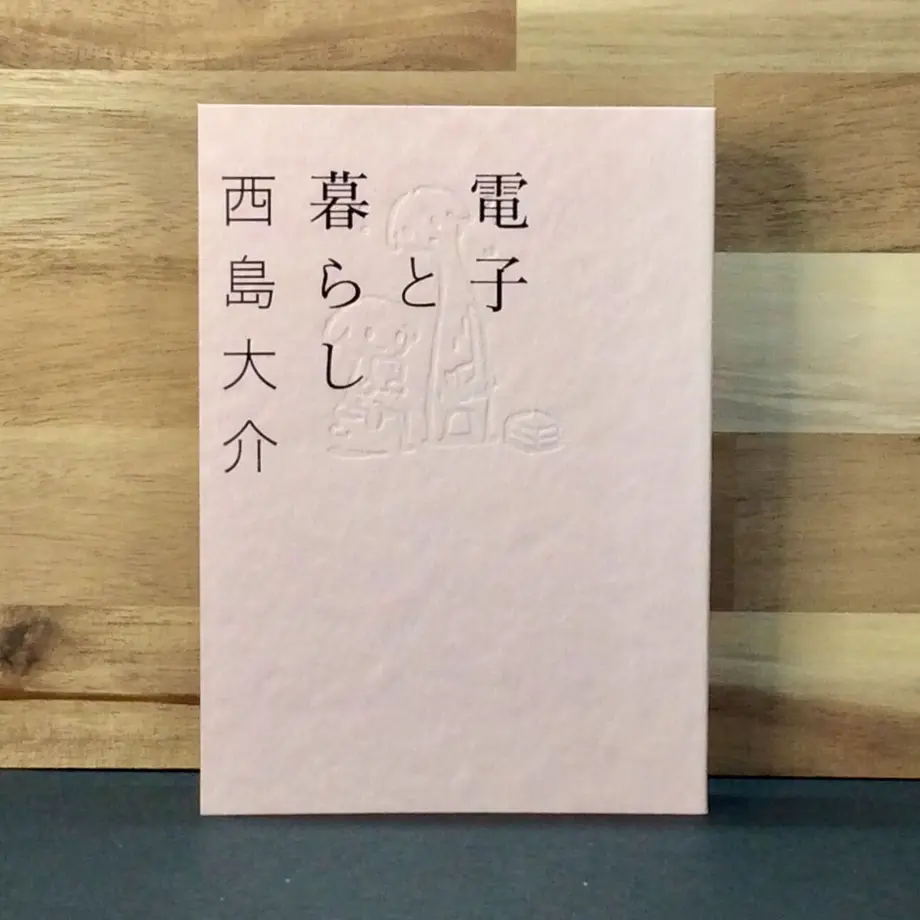 電子
と
暮らし
西島大介